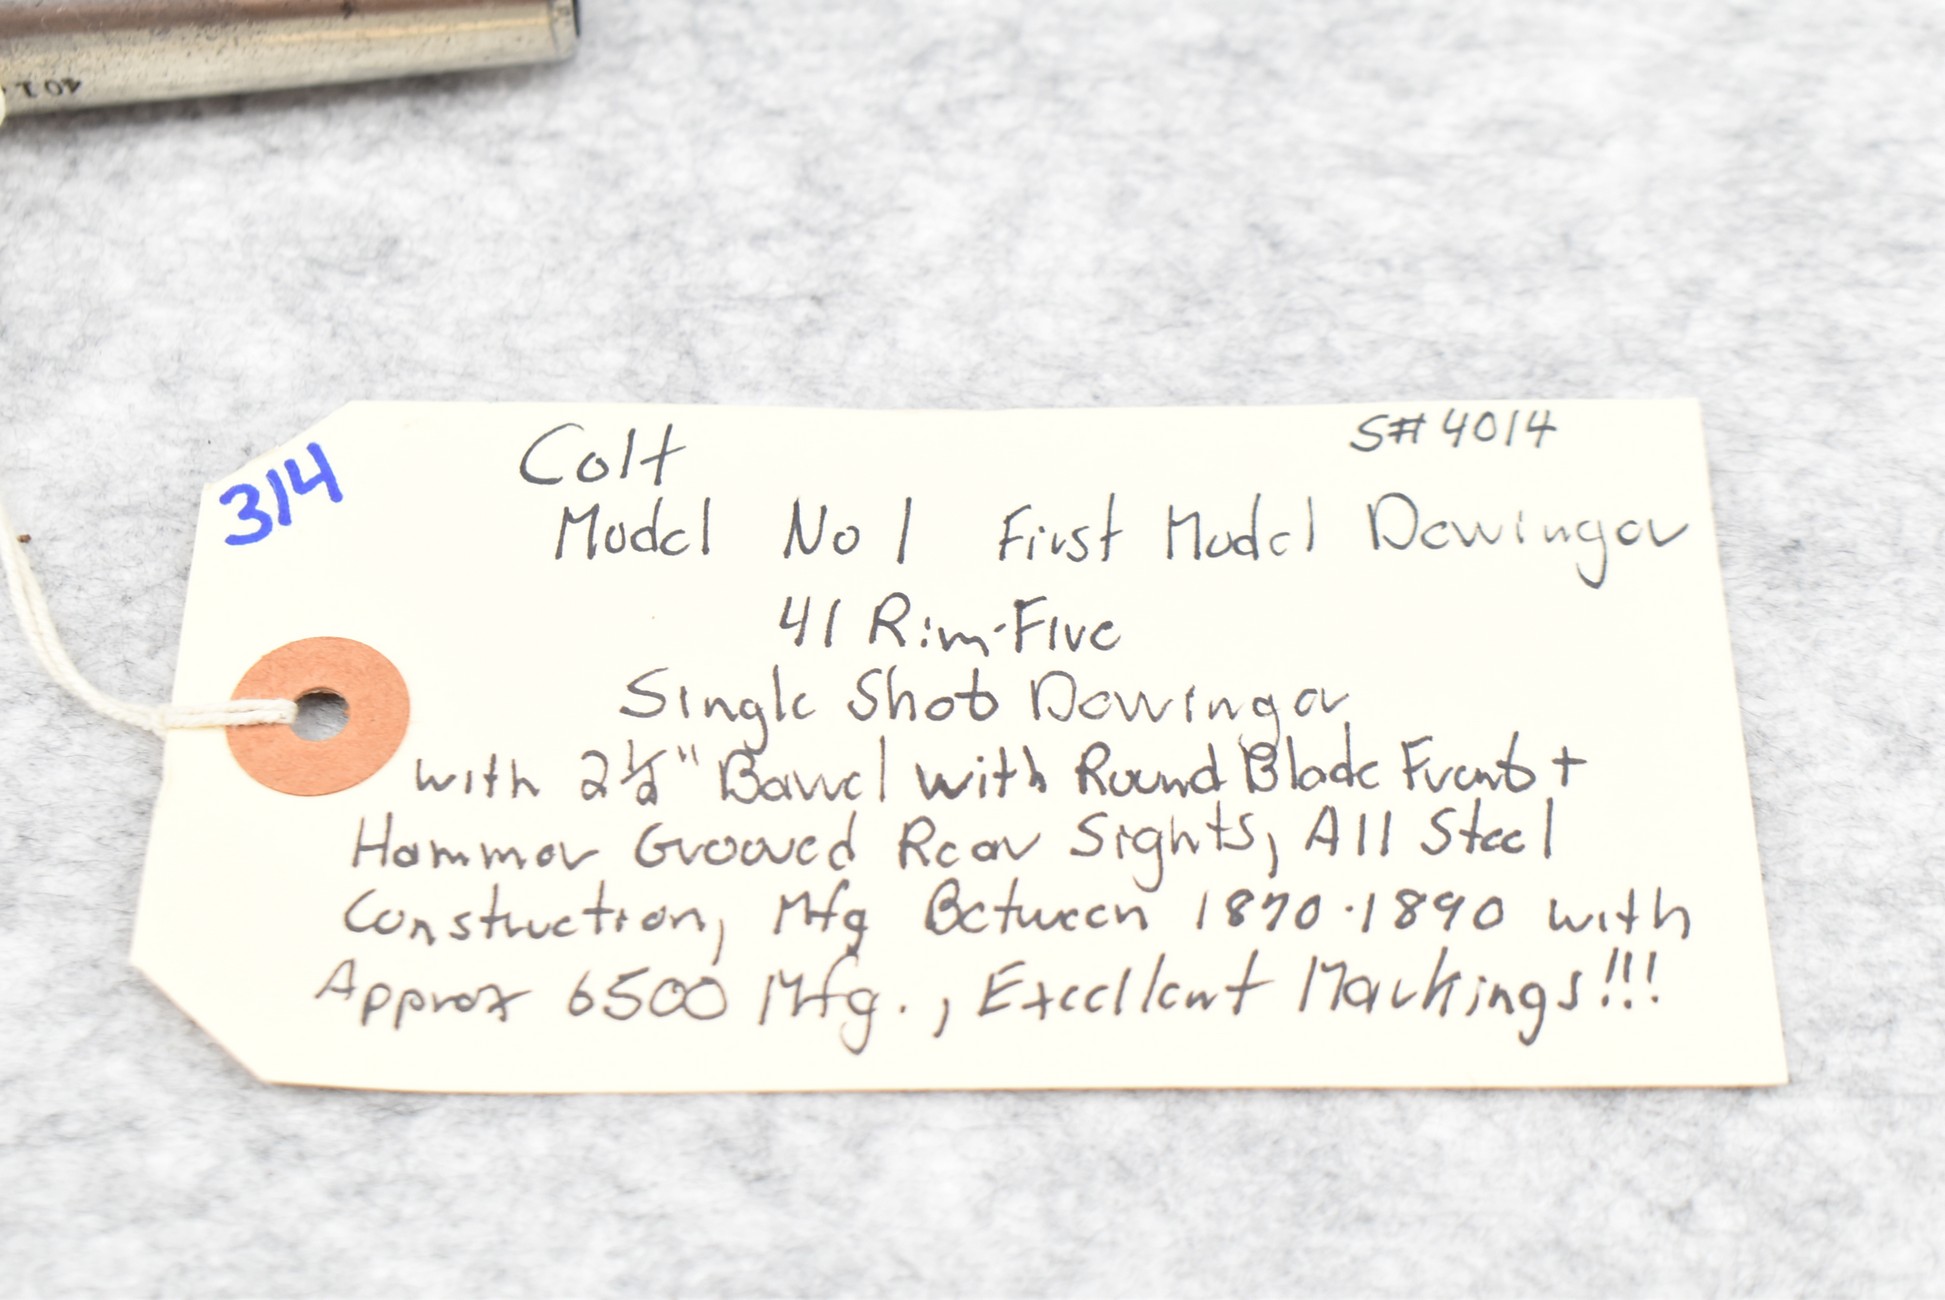 401
314
Colt
S# 4014
Model No 1 First Model Derringer
41 Rim-Fire
Single Shot Derringer
with 2 1/2" Barrel with Round Blade Front +
Hammer Grooved Rear Sights, All Steel
Construction, Mfg Between 1870-1890 with
Approx 6500 Mfg., Excellent Markings!!!